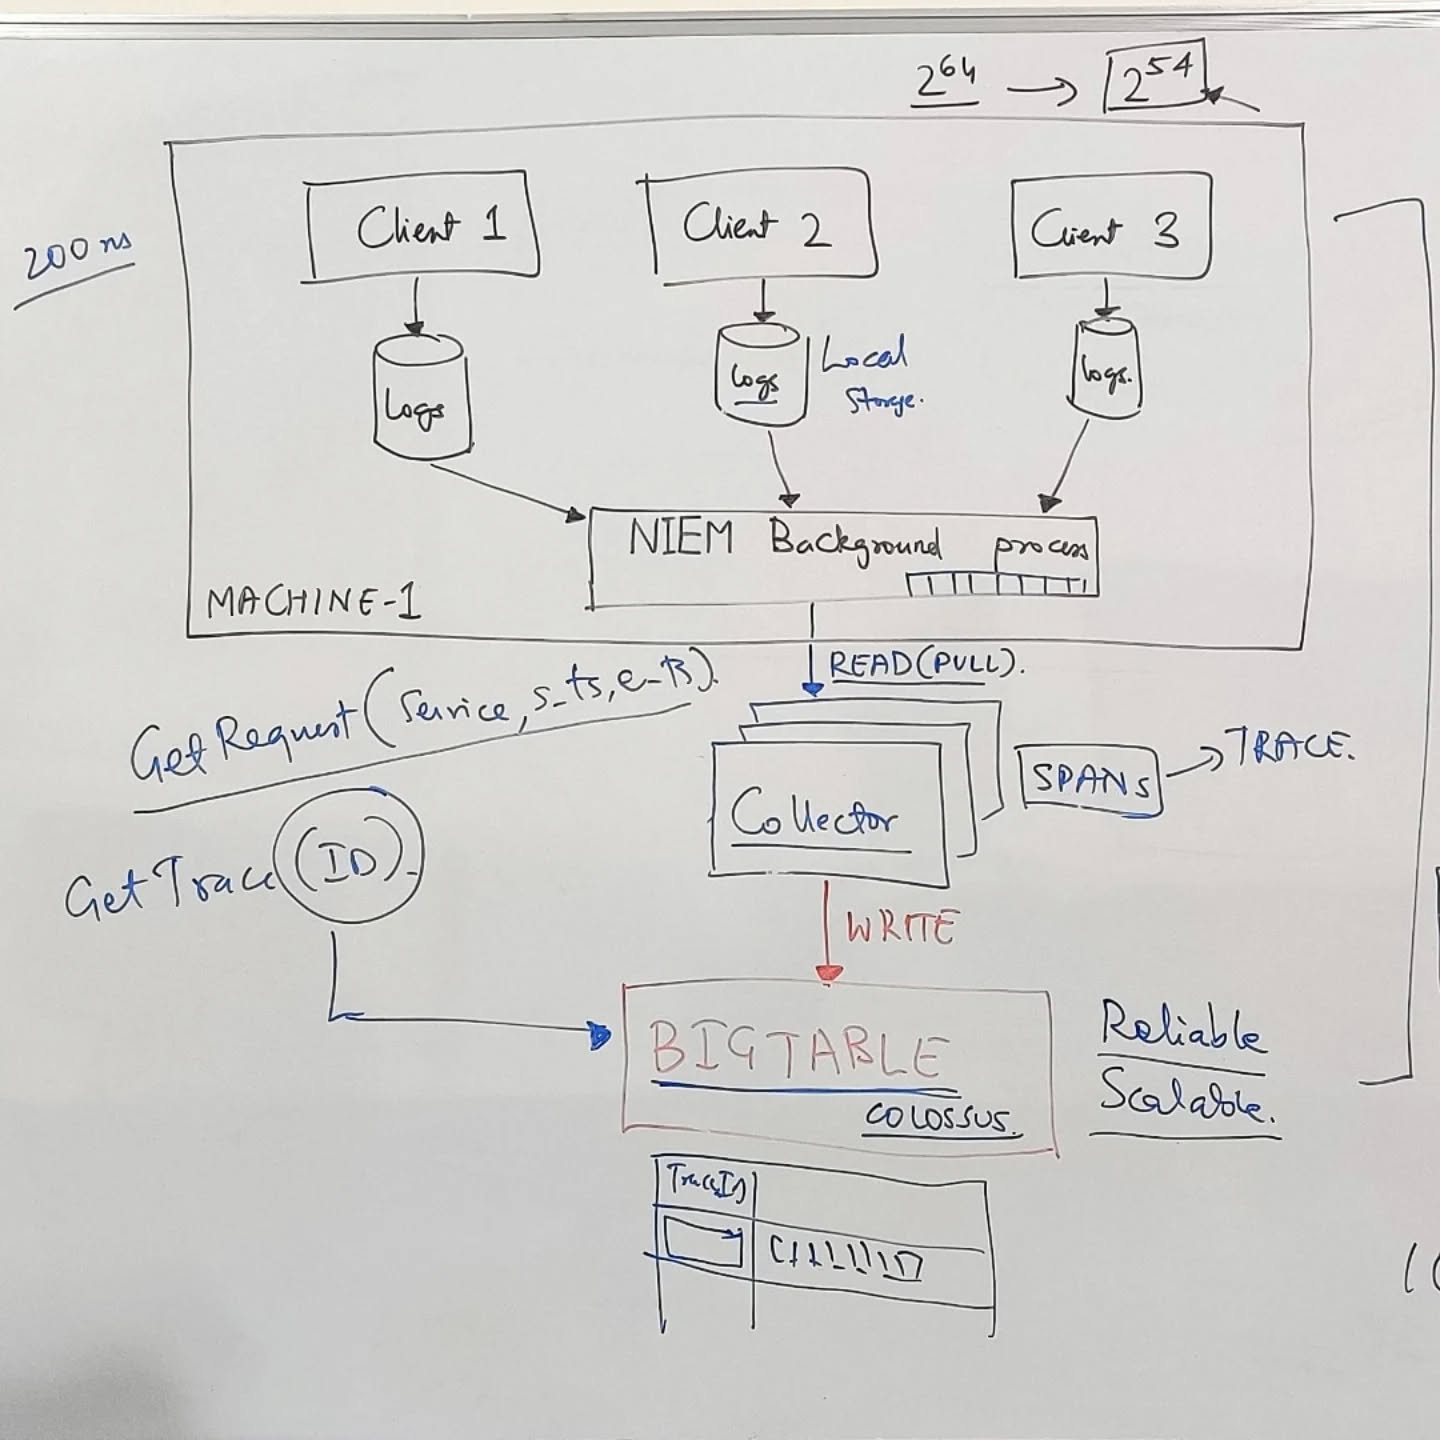 2^64 → 2^54
200 ns
Client 1
Client 2
Client 3
Logs
Logs
Local
Storage.
Logs.
NIEM Background process
MACHINE-1
READ(PULL).
GetRequest(Service, s_ts, e_ts).
Collector
SPANS → TRACE.
GetTrace(ID).
WRITE
BIGTABLE
COLOSSUS.
Reliable
Scalable.
TraceID